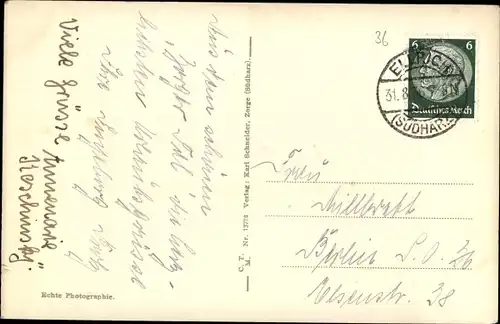 Aus dem schönen
Zorger Tal die herz-
lichsten Urlaubsgrüsse
Ihre
Viele Grüsse Annemarie
Echte Photographie.
C. T. Nr. 12776 Verlag: Karl Schneider, Zorge (Südharz).
M.
36
6 6
Deutsches Reich
ELLRICH
31.8.
(SÜDHARZ)
Frau
Berlin S.O. 36
Elsenstr. 38